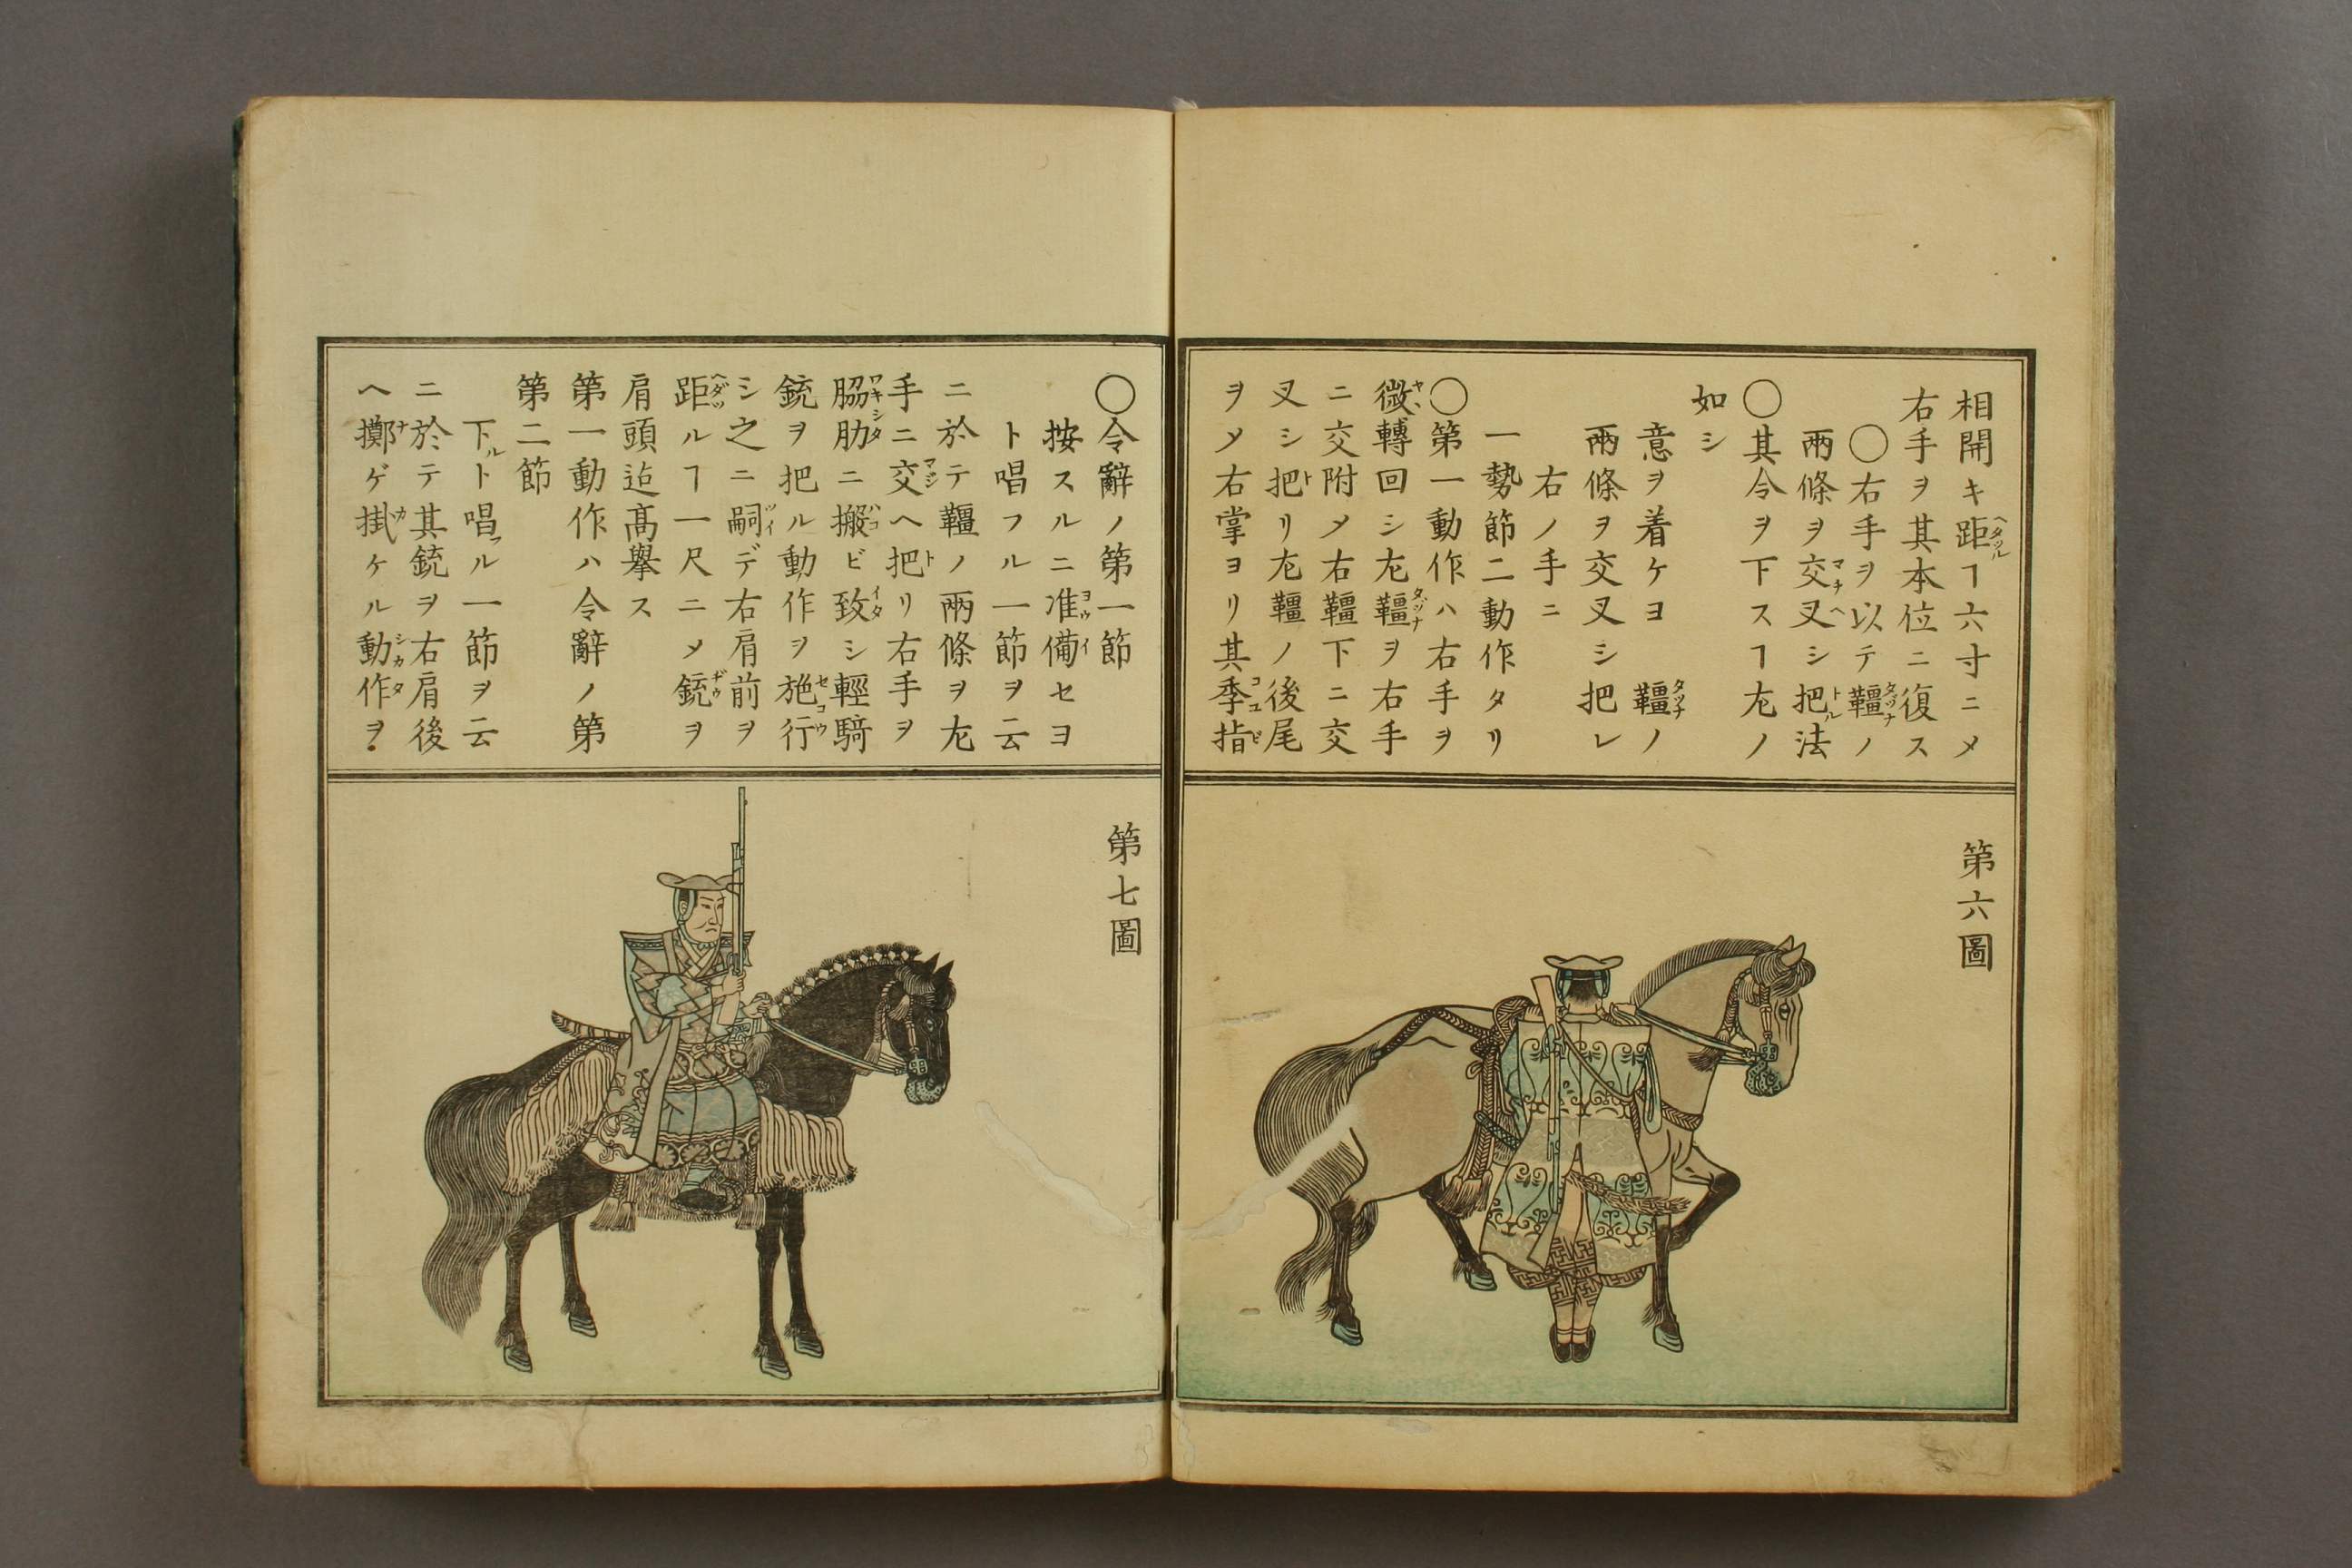 相開キ距ヿ六寸ニメ
右手ヲ其本位ニ復ス
〇右手ヲ以テ韁ノ
兩條ヲ交叉シ把法
〇其令ヲ下スヿ左ノ
如シ
意ヲ着ケヨ 韁ノ
兩條ヲ交叉シ把レ
右ノ手ニ
一勢節二動作タリ
〇第一動作ハ右手ヲ
微轉回シ左韁ヲ右手
ニ交附メ右韁下ニ交
叉シ把リ左韁ノ後尾
ヲメ右掌ヨリ其季指
第六圖
〇令辭ノ第一節
按スルニ准備セヨ
ト唱フル一節ヲ云
ニ於テ韁ノ兩條ヲ左
手ニ交ヘ把リ右手ヲ
脇肋ニ搬ビ致シ輕騎
銃ヲ把ル動作ヲ施行
シ之ニ嗣デ右肩前ヲ
距ルヿ一尺ニメ銃ヲ
肩頭迄高擧ス
第一動作ハ令辭ノ第
第二節
下ルト唱フル一節ヲ云
ニ於テ其銃ヲ右肩後
ヘ擲ゲ掛ケル動作ヲ
第七圖